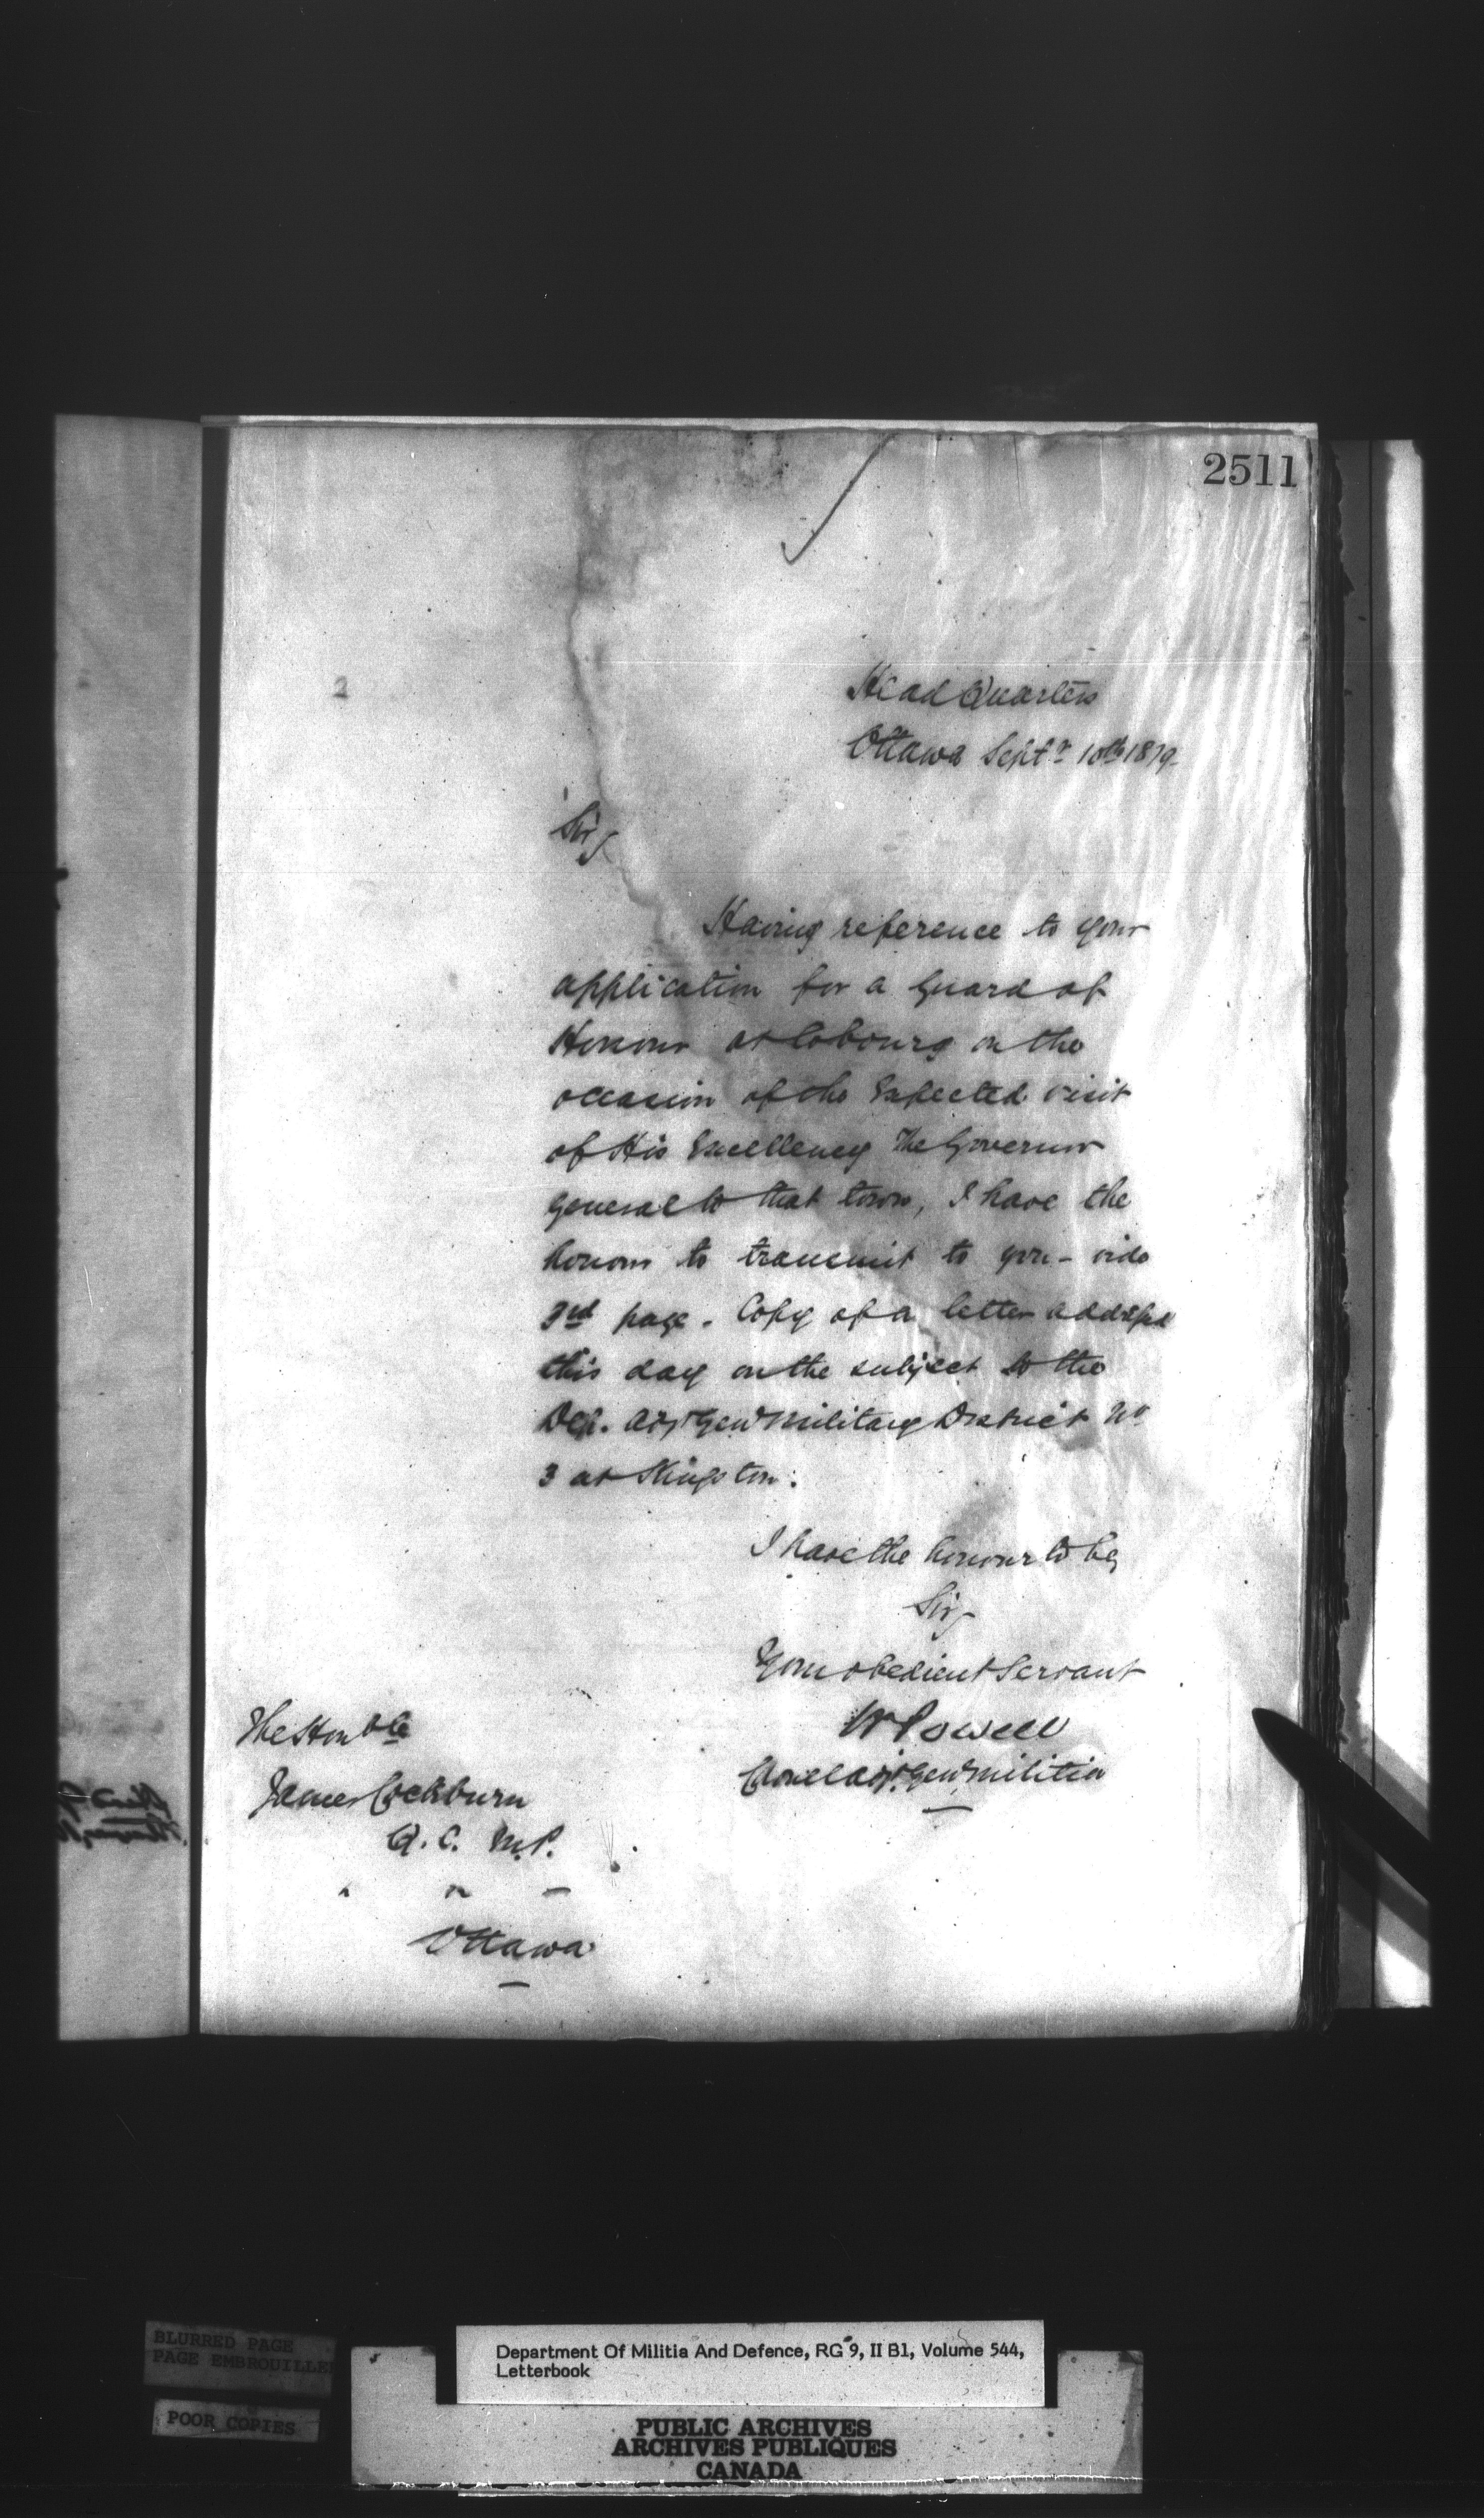 2511
Head Quarters
Ottawa Septr 10th 1879-
Sir,
Having reference to your
application for a Guard of
Honour at Cobourg on the
occasion of the Expected visit
of His Excellency The Governor
General to that town, I have the
honour to transmit to you - vide
3rd page. Copy of a letter addressed
this day on the subject to the
Dep. Adjt Genl Military District No
3 at Kingston.
I have the honour to be,
Sir,
Your obedient Servant
W Powell
Colonel Adjt. Genl Militia
The Honble
James Cockburn
Q.C. M.P.
Ottawa
BLURRED PAGE
PAGE EMBROUILLE
POOR COPIES
Department Of Militia And Defence, RG 9, II B1, Volume 544,
Letterbook
PUBLIC ARCHIVES
ARCHIVES PUBLIQUES
CANADA